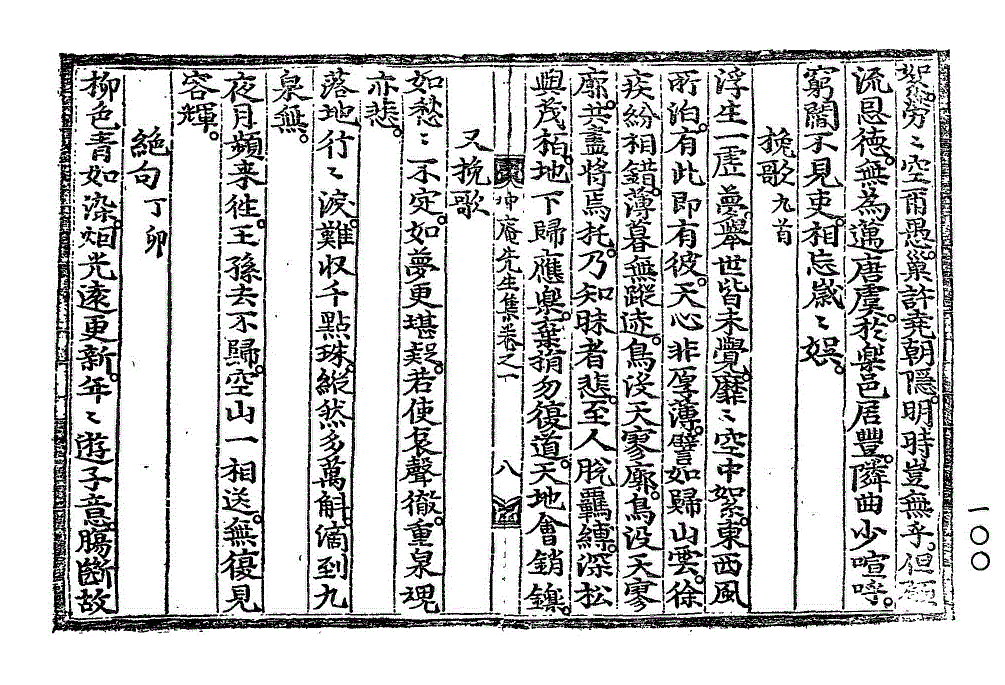 絮勞〻空爾愚巢許堯朝隱明時豈無乎但
流恩德無爲邁唐虞於樂邑居豐隣曲少喧呼
窮閻不見吏相忘歲〻娛
挽歌九首
浮生一虛夢擧世皆未覺靡〻空中絮東西風
所泊有此即有彼天心非厚薄譬如歸山雲徐
疾紛相錯薄暮無蹤迹鳥沒天寥廓鳥沒天寥
廓共盡將焉托乃知昧者悲至人脫羈縛深松
與茂栢地下歸應樂棄捐勿復道天地會銷鑠
冲庵先生集卷之下
八
又挽歌
如愁〻不定如夢更堪疑若使哀聲徹重泉魂
亦悲
落地行〻淚難収千點珠縱然多萬斛滴到九
泉無
夜月頻来徃王孫去不歸空山一相送無復見
容輝
絶句丁卯
柳色青如染烟光遠更新年〻遊子意膓斷故
一〇〇